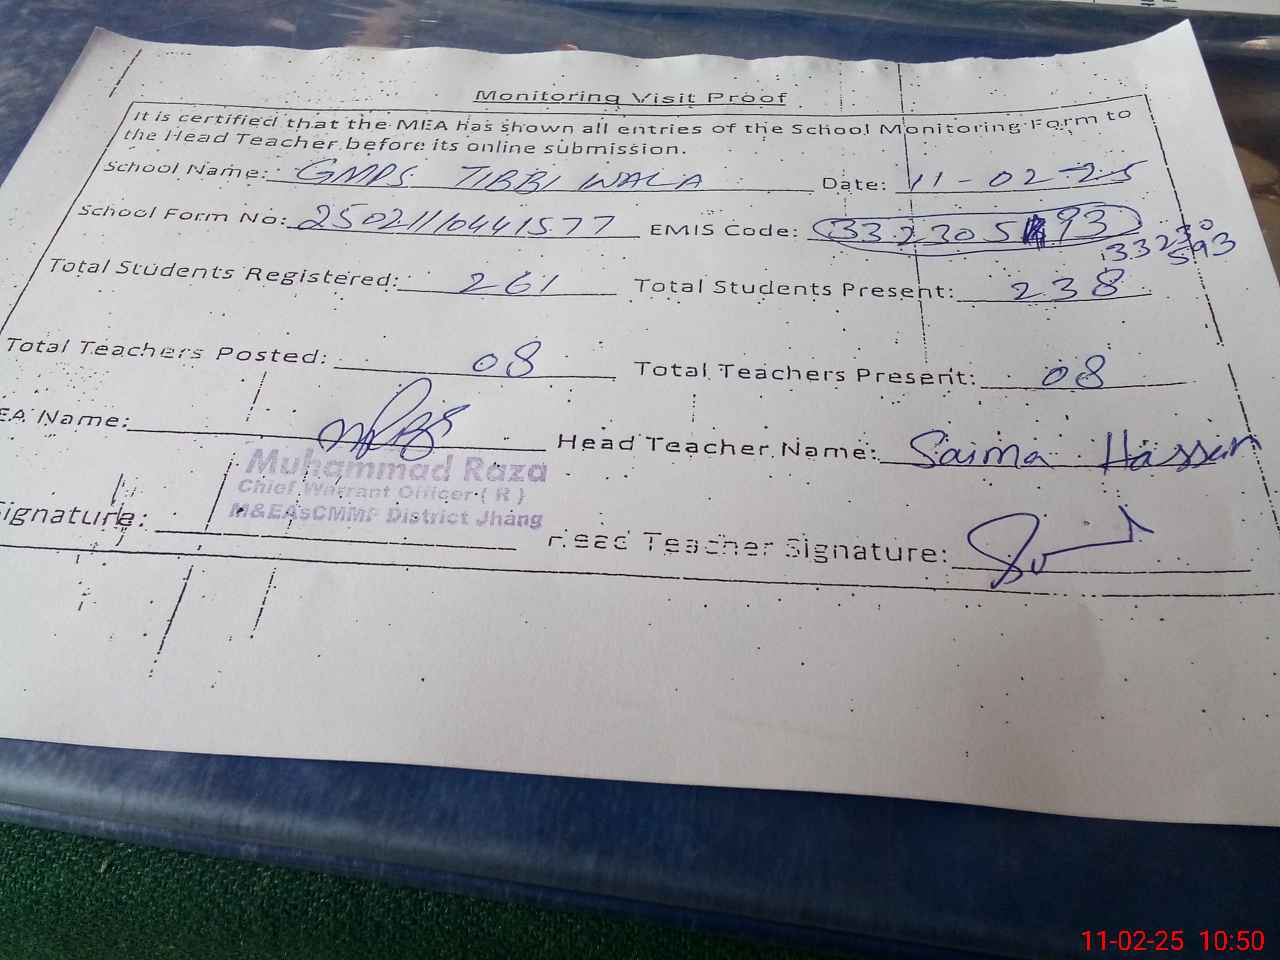 Monitoring Visit Proof
It is certified that the MEA has shown all entries of the School Monitoring Form to
the Head Teacher before its online submission.
School Name: GMPS TIBBI WALA Date: 11-02-25
School Form No: 25021110441577 EMIS Code: 33230593
33230
593
Total Students Registered: 261 Total Students Present: 238
Total Teachers Posted: 08 Total Teachers Present: 08
EA Name: Head Teacher Name: Saima Hassan
Muhammad Raza
Chief Warrant Officer ( R )
M&EAsCMMF District Jhang
ignature: Head Teacher Signature:
11-02-25 10:50